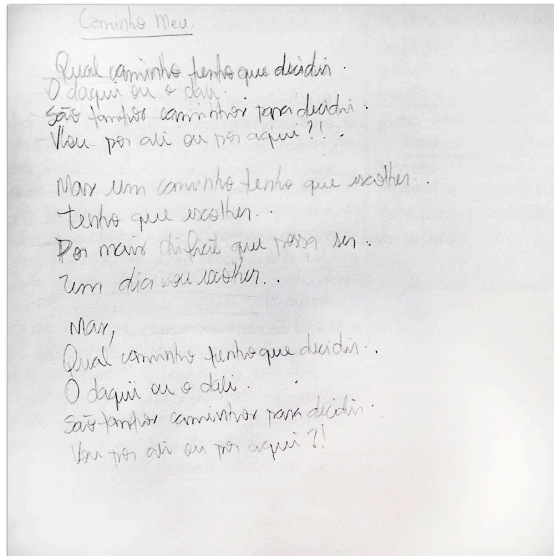 Caminho Meu.
Qual caminho tenho que decidir.
O daqui ou o dali.
São tantos caminhos para decidir.
Vou por ali ou por aqui?!.
Mas um caminho tenho que escolher..
tenho que escolher..
Por mais dificil que possa ser.
Um dia vou escolher..
Mas,
Qual caminho tenho que decidir..
O daqui ou o dali.
São tantos caminhos para decidir.
Vou por ali ou por aqui?!